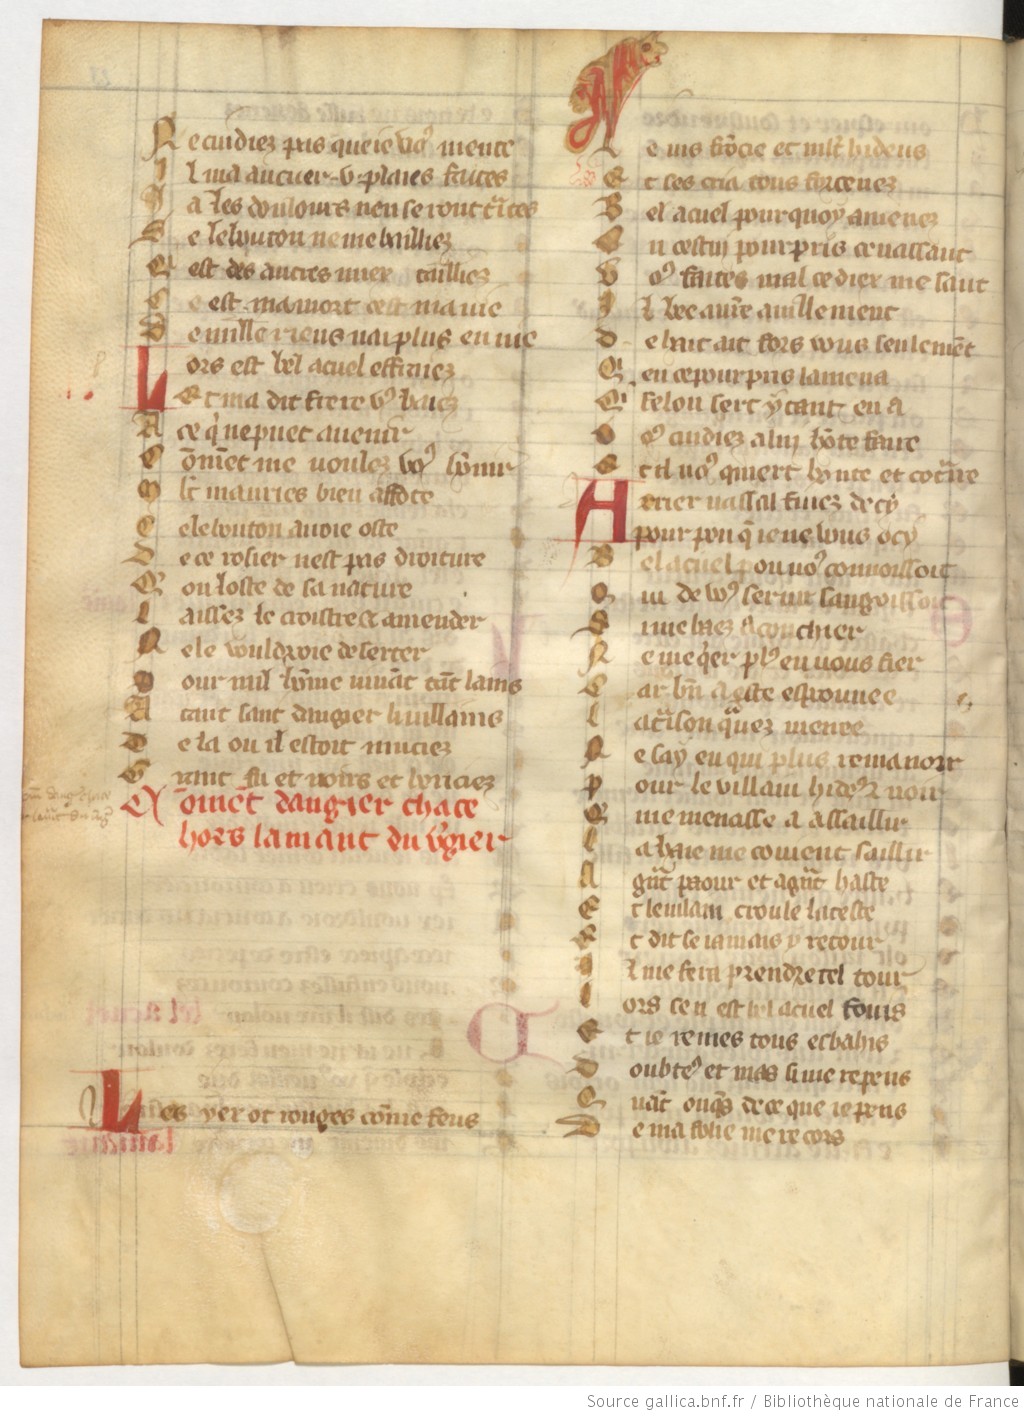 Ne cuidiez pas que ie voꝰ mente
Il ma au cuer .v. plaies faites
Ja les doulours nen seront t̾ites
Se le bouton ne me bailliez
Qui est des autres mier tailliez
Ce est ma mort cest ma vie
De nulle riens nai plus enuie
Lors est bel acuel effraez
Et ma dit frere vꝰ baez
A ce q̇ ne puet auenir
Cōmēt me voulez voꝰ honnir
mauries bien assote
Ce le bouton auoie oste
De ce rosier nest pas droiture
Con loste de sa nature
Laissez le croistre et amender
Ne le vouldroie deserter
Pour nul hōme viuāt tāt lains
A tant saut dangier li uillains
De la ou il estoit muciez
Grant fu et noirs et hericiez
Cōmēt dangier chace
hors lamant du v̾gier
Les yex ot rouges cōme feus
Le vis fronce et mlt hideus
Et ses cria tous forcenez
Bel acuel pourquoy amenez
Ou cestui pourpris ce vassaut
Voꝰ faites mal ce dier me saut
Il bee a u̾re auillement
De hait ait fors vous seulemēt
Qen ce pourpris lamena
Qui felon sert ytant en a
Voꝰ cuidiez a luy hōte faire
Et il voꝰ quiert honte et cōt̾re
Arrier vassal fuiez de cy
A pour pou q̄ ie ne vous ocy
Bel acuel pou voꝰ connoissoit
Qui de voꝰ seruir sangoissoit
Si me baez a conchier
Ne me q̇er plꝰ en vous fier
Car bn̄ a este esprouuee
La t̾ison quauez menee
Ne say en qui plus remanoir
Pour le villain hideꝰ et noir
Qme menasse a assaillir
La haie me couient saillir
A gn̄t paour et a gn̄t haste
Et le vilain croule la teste
Et dit se iamais y retour
Il me fera prendre tel tour
Lors sen est bel acuel fouis
Et ie remes tous esbahis
Doubteꝰ et mas si me repens
Quāt onq̄s de ce que ie pens
De ma folie me recors